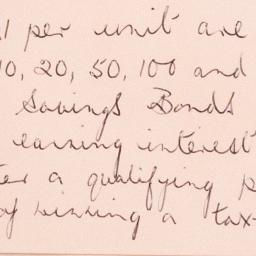 1 per unit are
10, 20, 50, 100 and
Savings Bonds
earning interest
a qualifying p
of winning a tax-